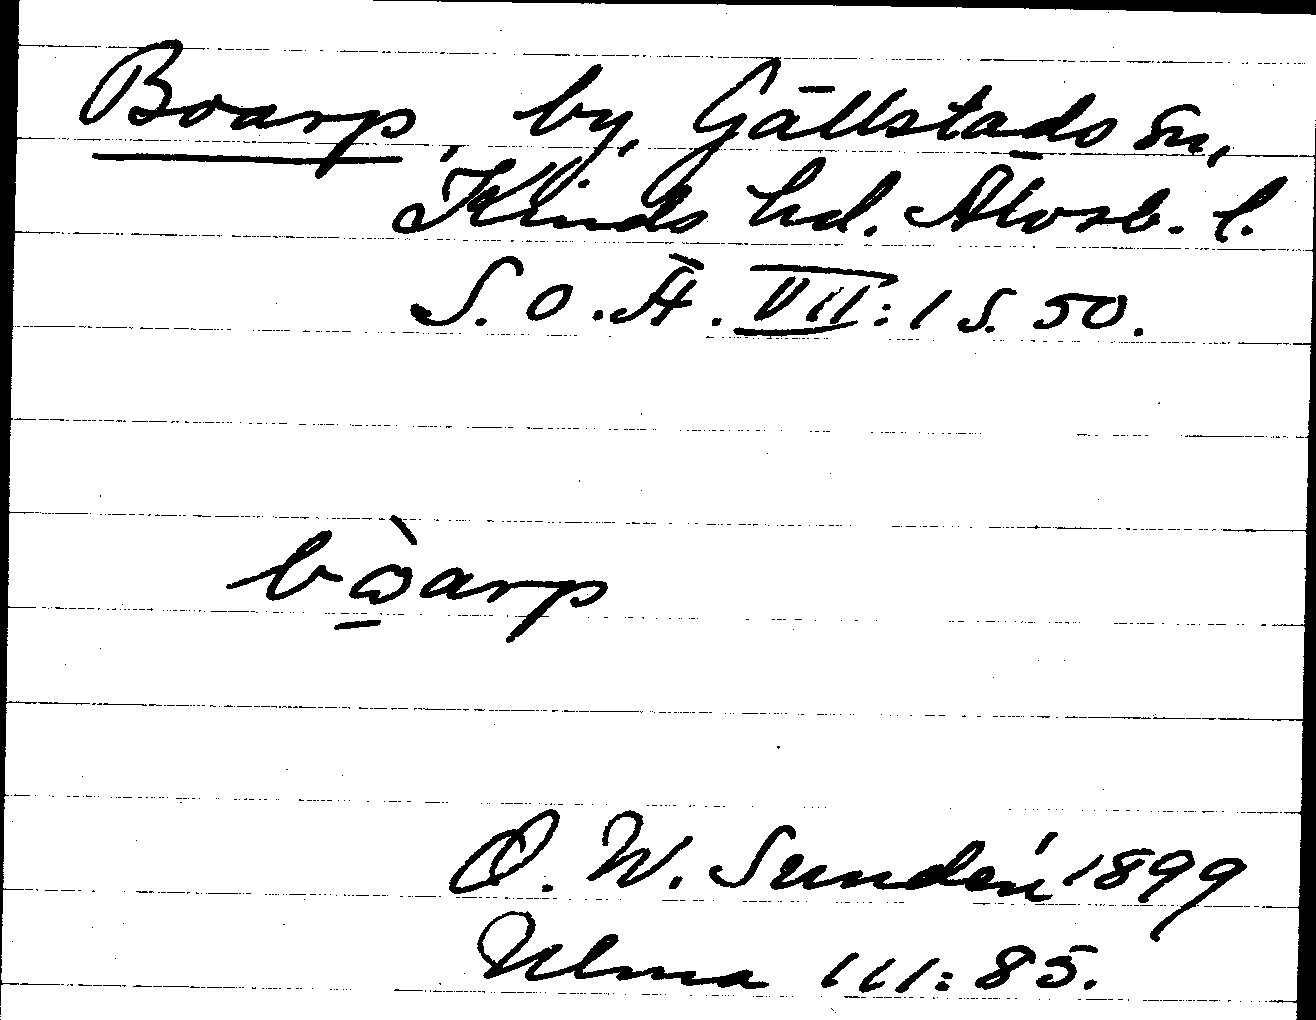 Boarp, by, Gällstads sn,
Kinds hd. Älvsb. l.
S. O. Ä. VII: 1 S. 50.
bὼarp
O. W. Sundén 1899
Ulma 111: 85.